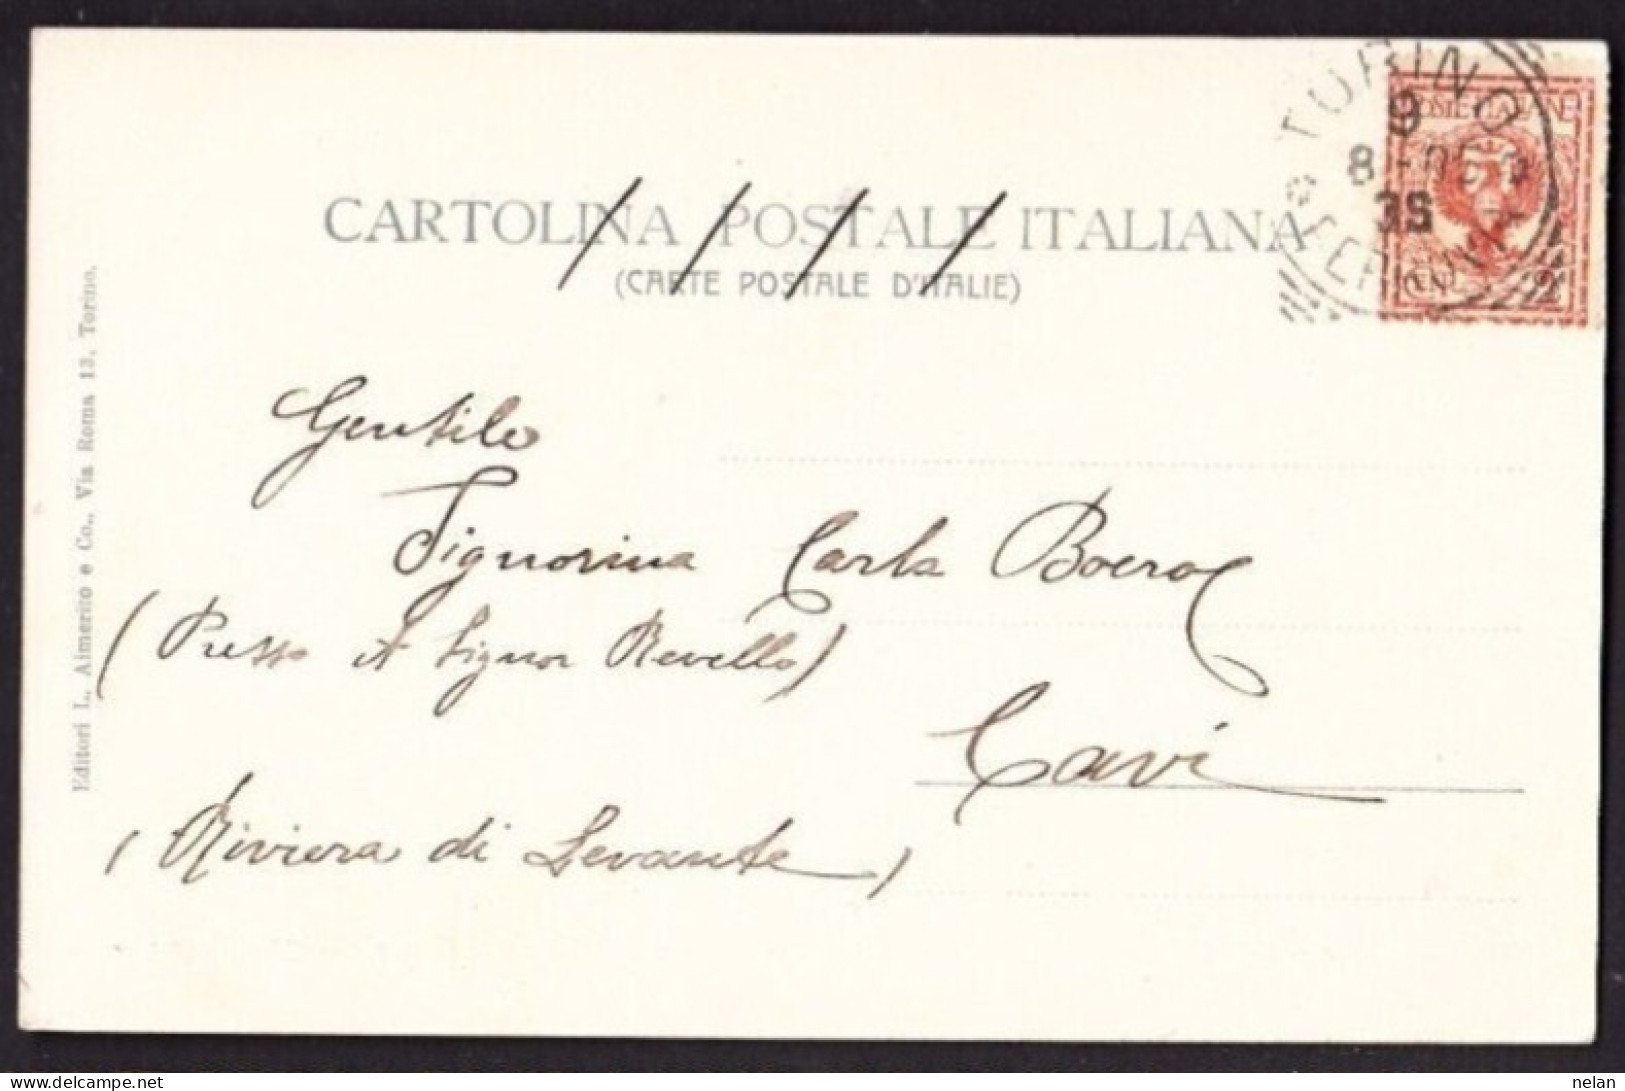 CARTOLINA POSTALE ITALIANA
(CARTE POSTALE D'ITALIE)
TORINO
9
8
3S
POSTE ITALIANE
2
Gentile
Signorina Carla Boero
(Presso il Signor Revello)
Cavi
(Riviera di Levante)
Editori L. Aimerito e Co., Via Roma 13, Torino.
nelan